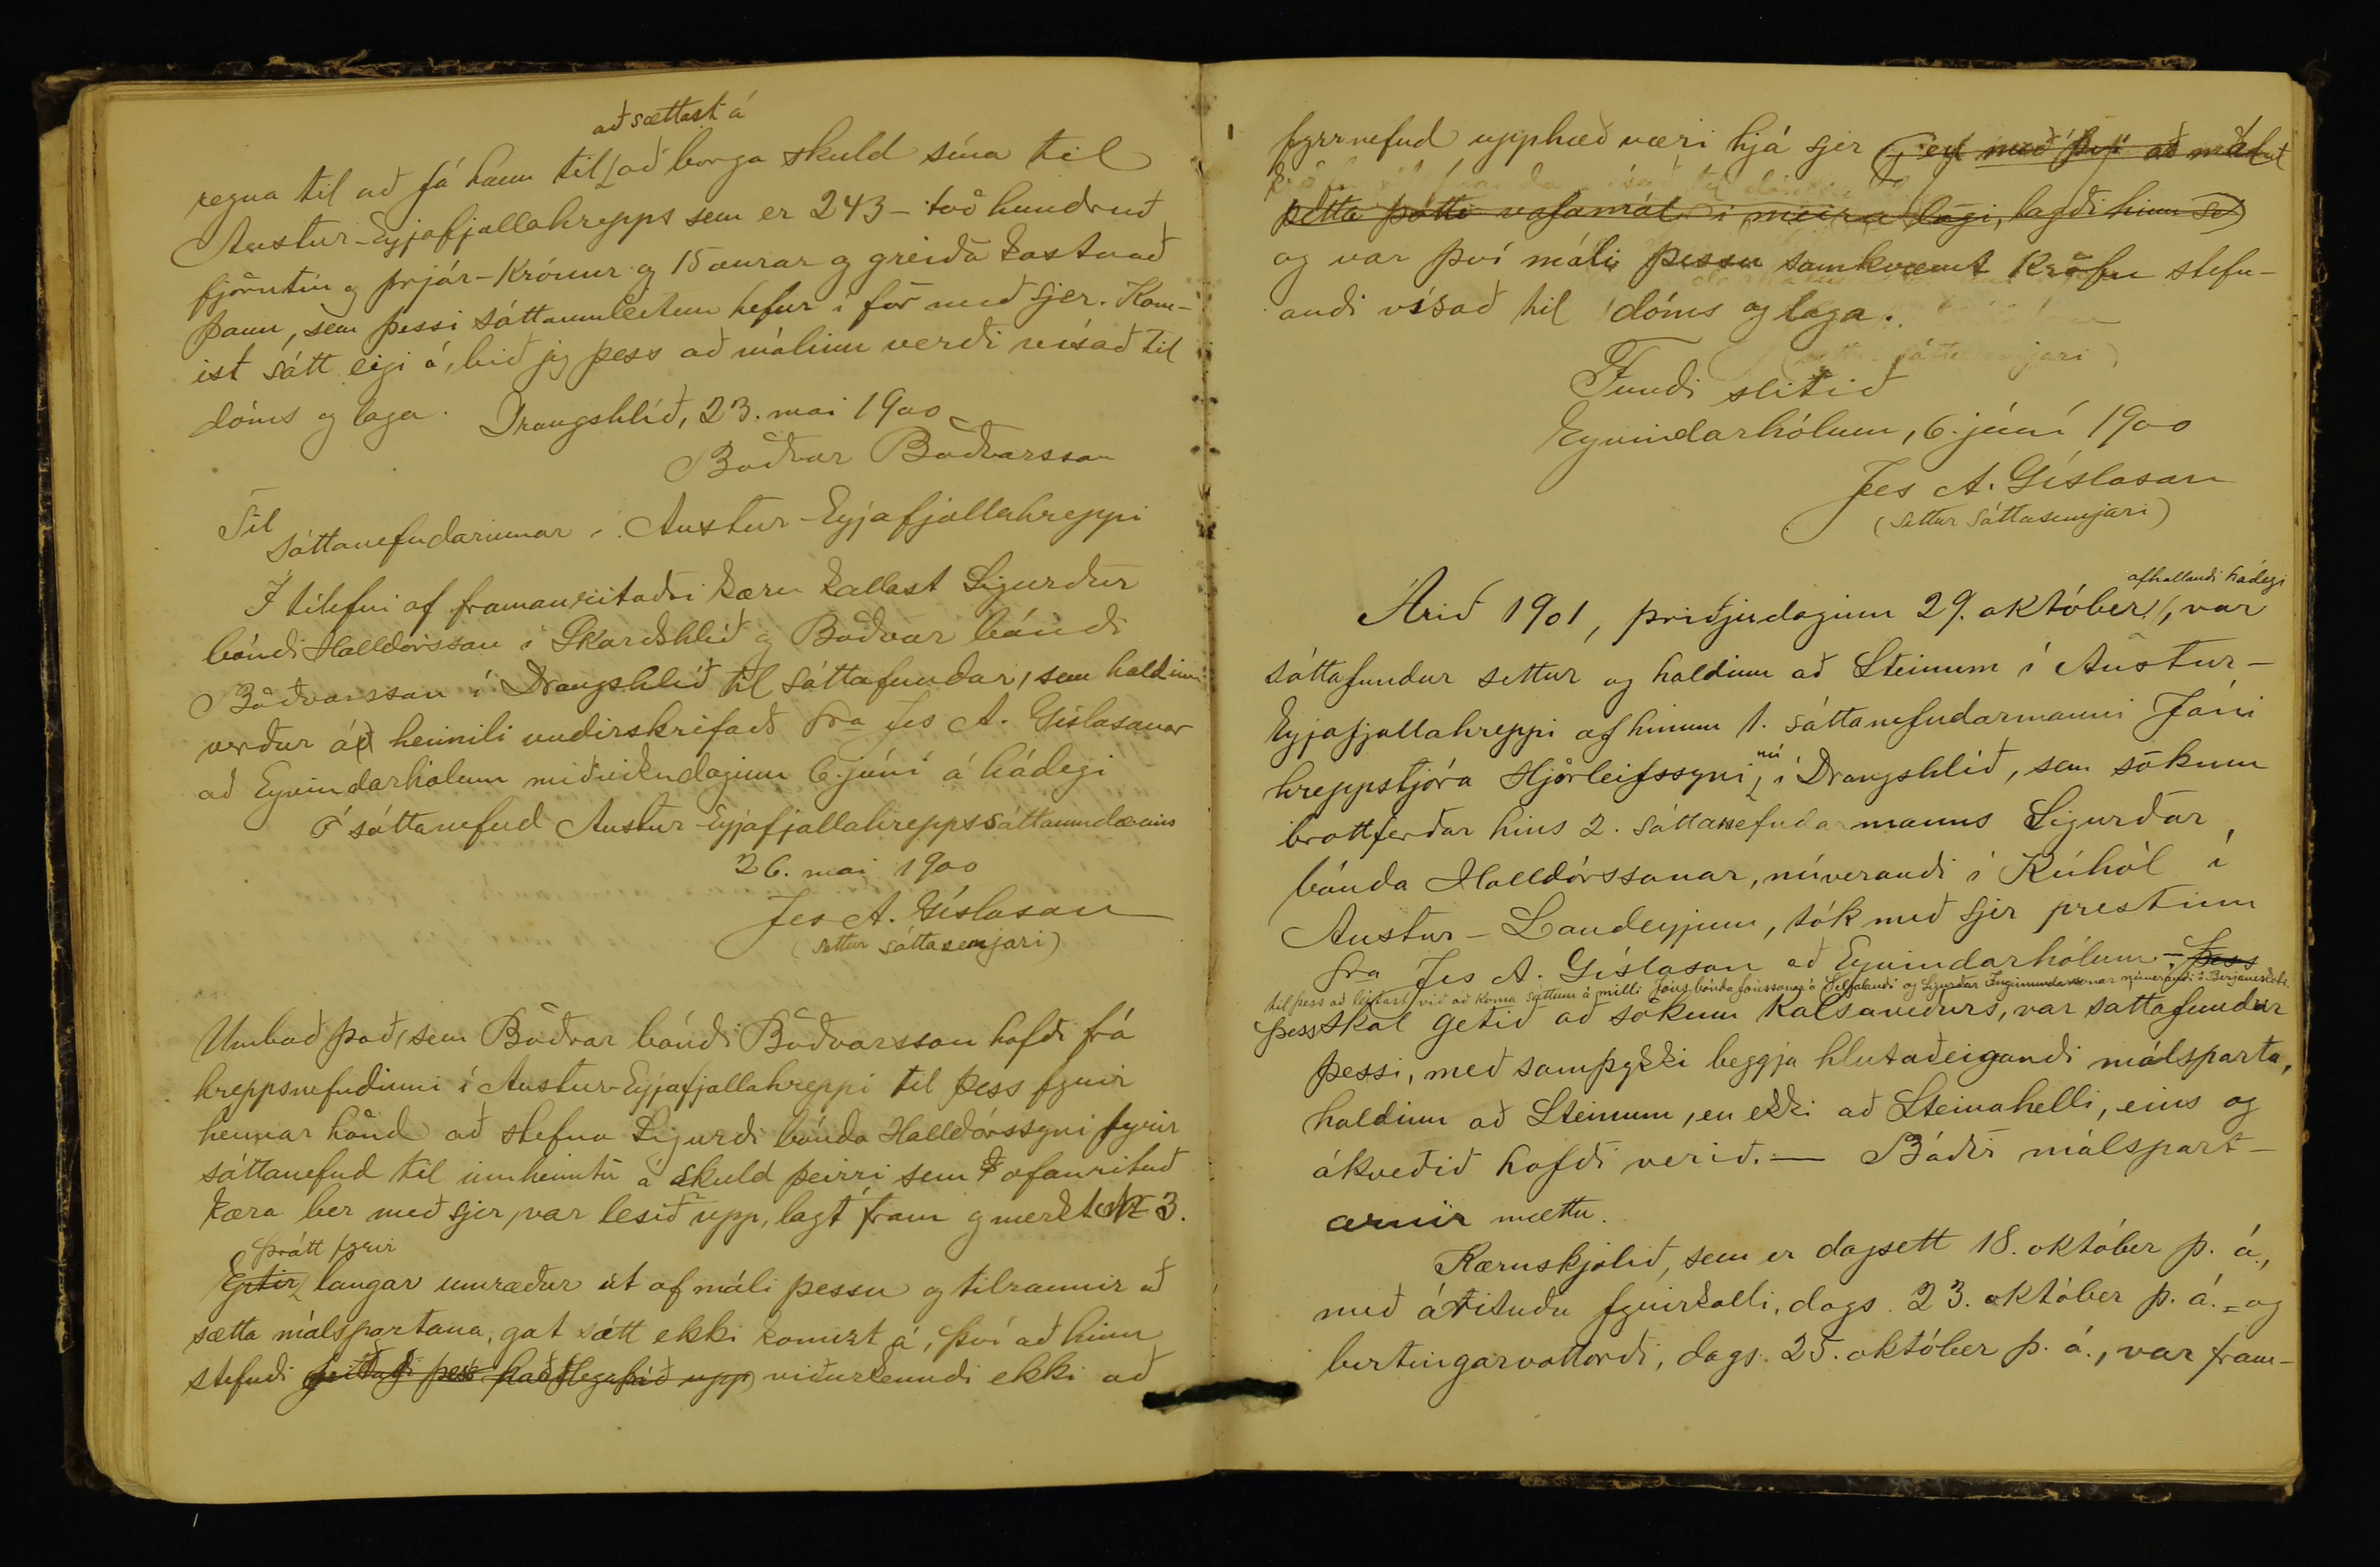 að sættast á
regna til að fá hann til að borga skuld sína til
Austur-Eyjafjallahrepps sem er 243 - tvö hundruð
fjörutíu og þrjár - Krónur og 15 aurar og greiða kostnað
þann, sem þessi sáttaumleitun hefur í för með sjer. Kom-
ist sátt eigi á, bið jeg þess að málinu verði vísað til
dóms og laga. Drangshlíð, 23. mai 1900
Böðvar Böðvarsson
Til
Sáttanefndarinnar í Austur-Eyjafjallahreppi
Í tilefni af framanritaðri kæru kallast Sigurður
bóndi Halldórsson í Skarðshlíð og Böðvar bóndi
Böðvarsson í Drangshlíð til sáttafundar, sem haldinn
verður á heimili undirskrifaðs sra Jes A. Gíslasonar
að Eyvindarhólum miðvikudaginn 6. júní á hádegi
Í sáttanefnd Austur-Eyjafjallahreppssáttaumdæmis
26. mai 1900
Jes A. Gíslason
(settur sáttasemjari)
Umboð það, sem Böðvar bóndi Böðvarsson hafði frá
hreppsnefndinni í Austur-Eyjafjallahreppi til þess fyrir
hennar hönd að stefna Sigurði bónda Halldórssyni fyrir
sáttanefnd til innheimtu á skuld þeirri sem ofanrituð
kæra ber með sjer, var lesið upp, lagt fram og merkt No 3.
þrátt fyrir
Eptir langar umræður út af máli þessu og tilraunir að
sætta málspartana, gat sátt ekki komist á, því að hinn
stefndi viðurkenndi ekki að
fyrrnefnd upphæð væri hjá sjer með því að málið
þetta þótti vafamál í meira lagi, lagði hinn
og var því máli þessu samkvæmt kröfu stefn-
andi vísað til dóms og laga.
Fundi slitið
Eyvindarhólum, 6. júní 1900
Jes A. Gíslason
(settur sáttasemjari)
afhallandi hádegi
Árið 1901, þriðjudaginn 29. október, var
sáttafundur settur og haldinn að Steinum í Austur-
Eyjafjallahreppi af hinum 1. sáttanefndarmanni Jóni
hreppstjóra Hjörleifssyni nú í Drangshlíð, sem sökum
brottferðar hins 2. sáttanefndarmanns Sigurðar
bónda Halldórssonar, núverandi í Kúhól í
Austur-Landeyjum, tók með sjer prestinn
sra Jes A. Gíslason að Eyvindarhólum - þess
til þess að leitast við að koma sáttum á milli Jóns bónda Jónssonar á Seljalandi og Sigurðar Ingimundarsonar núverandi á Berjaneskoti.
þess skal getið að sökum kalsaveðurs, var sáttafundur
þessi, með samþykki beggja hlutaðeigandi málsparta,
haldinn að Steinum, en ekki að Steinahelli, eins og
ákveðið hafði verið. — Báðir málspart-
arnir mættu.
Kæruskjalið, sem er dagsett 18. október þ. á.,
með árituðu fyrirkalli, dags. 23. október þ. á. - og
birtingarvottorði, dags. 25. október þ. á., var fram-